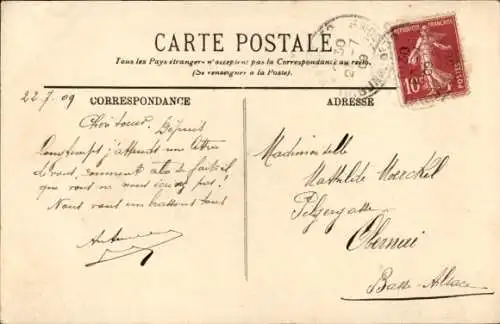 CARTE POSTALE
Tous les Pays étrangers n'acceptent pas la Correspondance au recto.
(Se renseigner à la Poste).
RÉPUBLIQUE FRANÇAISE
10
POSTES
22-7-09
CORRESPONDANCE
ADRESSE
Depuis
longtemps j'attends une lettre
de vous, comment cela se fait-il
que vous ne nous écrivez pas!
Nous vous embrassons tous
Mademoiselle
Mathilde
Pilgergasse
Obernai
Basse-Alsace